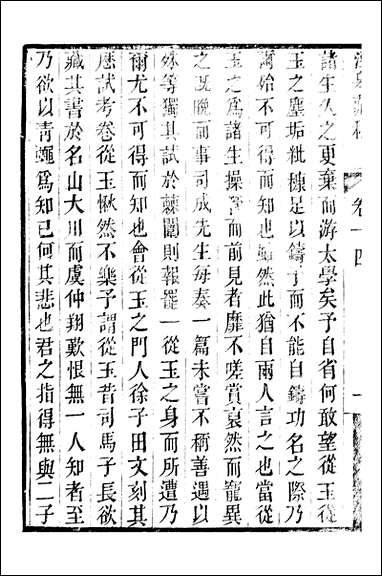 卷十四
諸生久之更棄而游太學矣予自省何敢望從玉從
玉之塵垢粃穅足以鑄予而不能自鑄功名之際乃
爾殆不可得而知也雖然此猶自兩人言之也當從
玉之爲諸生操而前見者靡不嗟賞裒然而寵異
之既晩而事司成先生每奏一篇未嘗不稱善遇以
殊等獨其試於棘闈則報罷一從玉之身而所遭乃
爾尤不可得而知也會從玉之門人徐子田文刻其
應試考卷從玉愀然不樂予謂從玉昔司馬子長欲
藏其書於名山大川而虞仲翔歎恨無一人知者至
乃欲以青蠅爲知已何其悲也君之指得無與二子